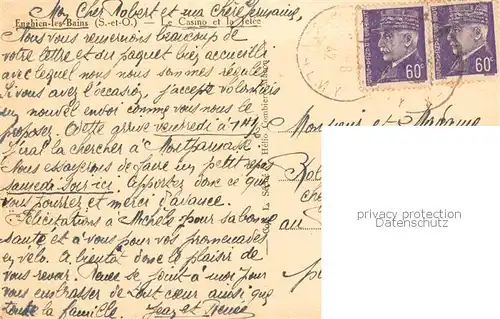 Mon Cher Robert et ma Chère Germaine,
Enghien-les-Bains (S.-et-O.) — Le Casino et la Jetée
Nous vous remercions beaucoup de
votre lettre et du paquet bien accueilli
avec lequel nous nous sommes régalés
Si vous avez l'occasion, j'accepte volontiers
un nouvel envoi comme vous nous le
proposez. Odette arrive vendredi à
J'irai la chercher à Montparnasse
Nous essayerons de faire un petit repas
samedi soir ici. Apportez donc ce que
vous pourrez et merci d'avance.
Félicitations à Michèle pour sa bonne
santé et à vous pour vos promenades
en vélo. A bientôt donc le plaisir de
vous revoir. Renée se joint à moi pour
vous embrasser de tout cœur ainsi que
toute la famille. Jean et Renée
60c
60c
Monsieur et Madame
au
privacy protection
Datenschutz